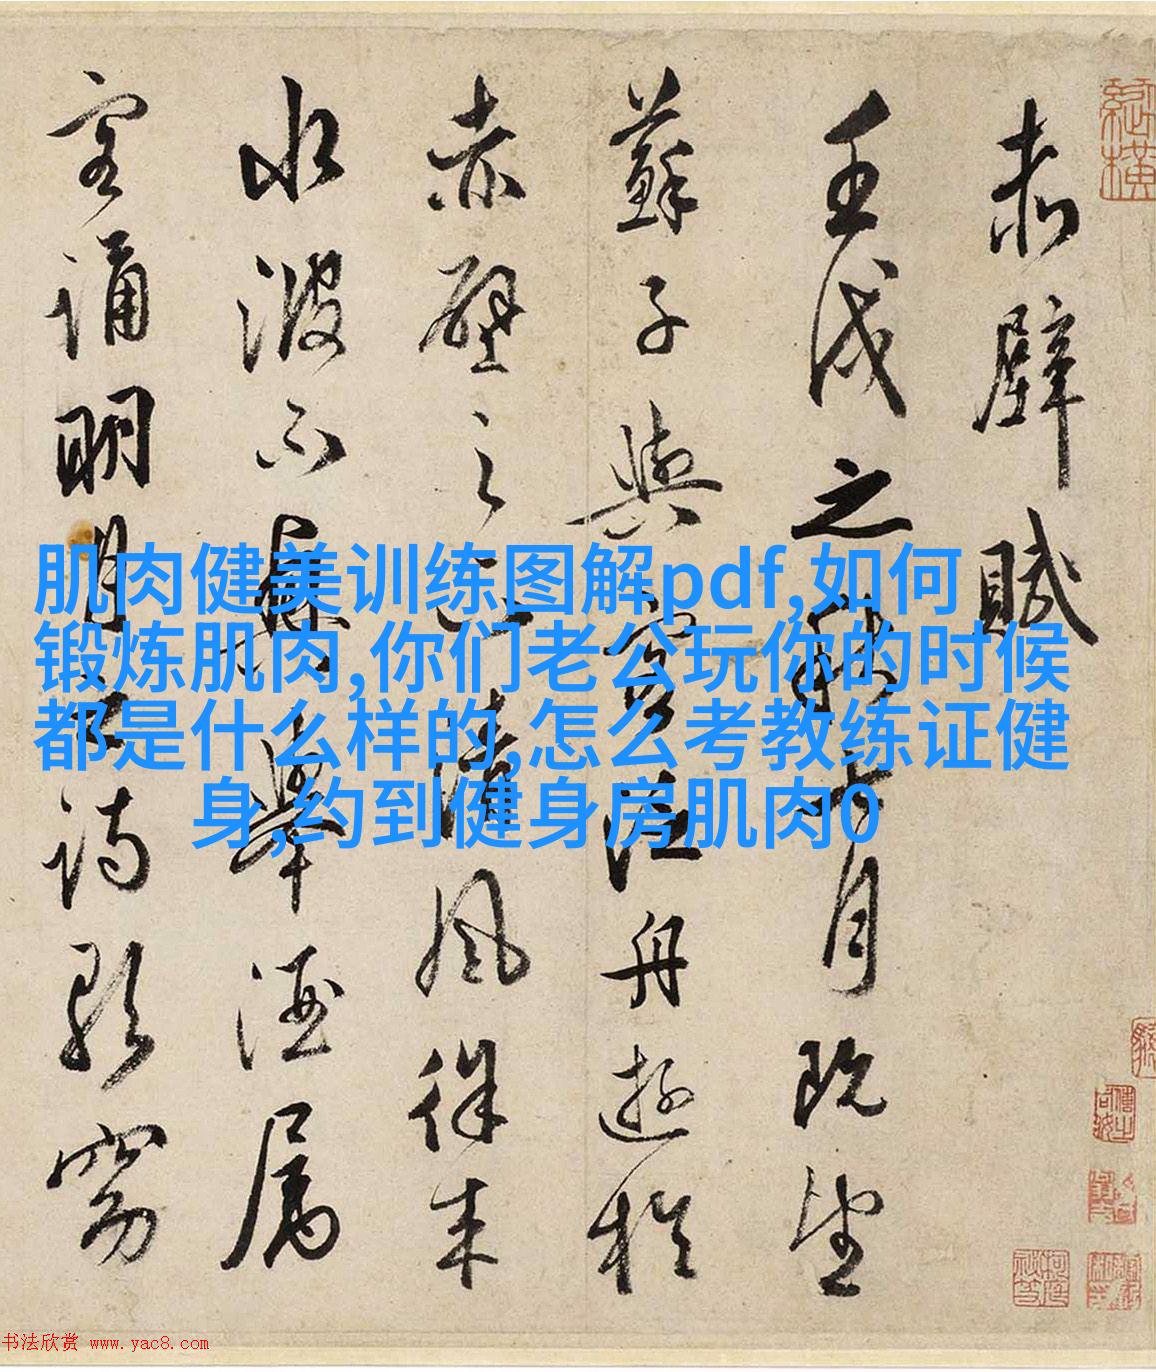 赤壁賦
壬戌之秋七月既望
蘇子與客泛舟遊於
赤壁之下清風徐来
水波不興舉酒属
客誦明月之詩歌窈
肌肉健美训练图解pdf,如何
锻炼肌肉,你们老公玩你的时候
都是什么样的,怎么考教练证健
身,约到健身房肌肉0
书法欣赏 www.yac8.com